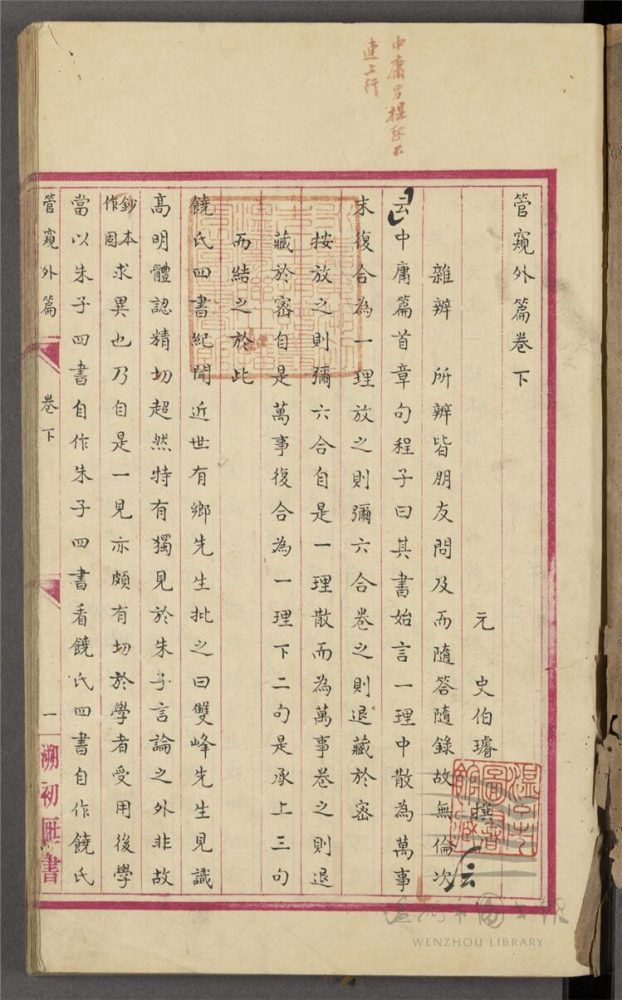 中庸另提起不
連上行
管窺外篇卷下
元 史伯璿 撰
雜辨 所辨皆朋友問及而隨答隨錄故無倫次
云中庸篇首章句程子曰其書始言一理中散為萬事
末復合為一理放之則彌六合卷之則退藏於密
按放之則彌六合自是一理散而為萬事卷之則退
藏於密自是萬事復合為一理下二句是承上三句
而結之於此
饒氏四書紀聞近世有鄉先生批之曰雙峰先生見識
高明體認精切超然特有獨見於朱子言論之外非故
鈔本作固
求異也乃自是一見亦頗有切於學者受用後學
當以朱子四書自作朱子四書看饒氏四書自作饒氏
管窺外篇 卷下 一 溯初匧書
云
溫州市圖書館藏
WENZHOU LIBRARY